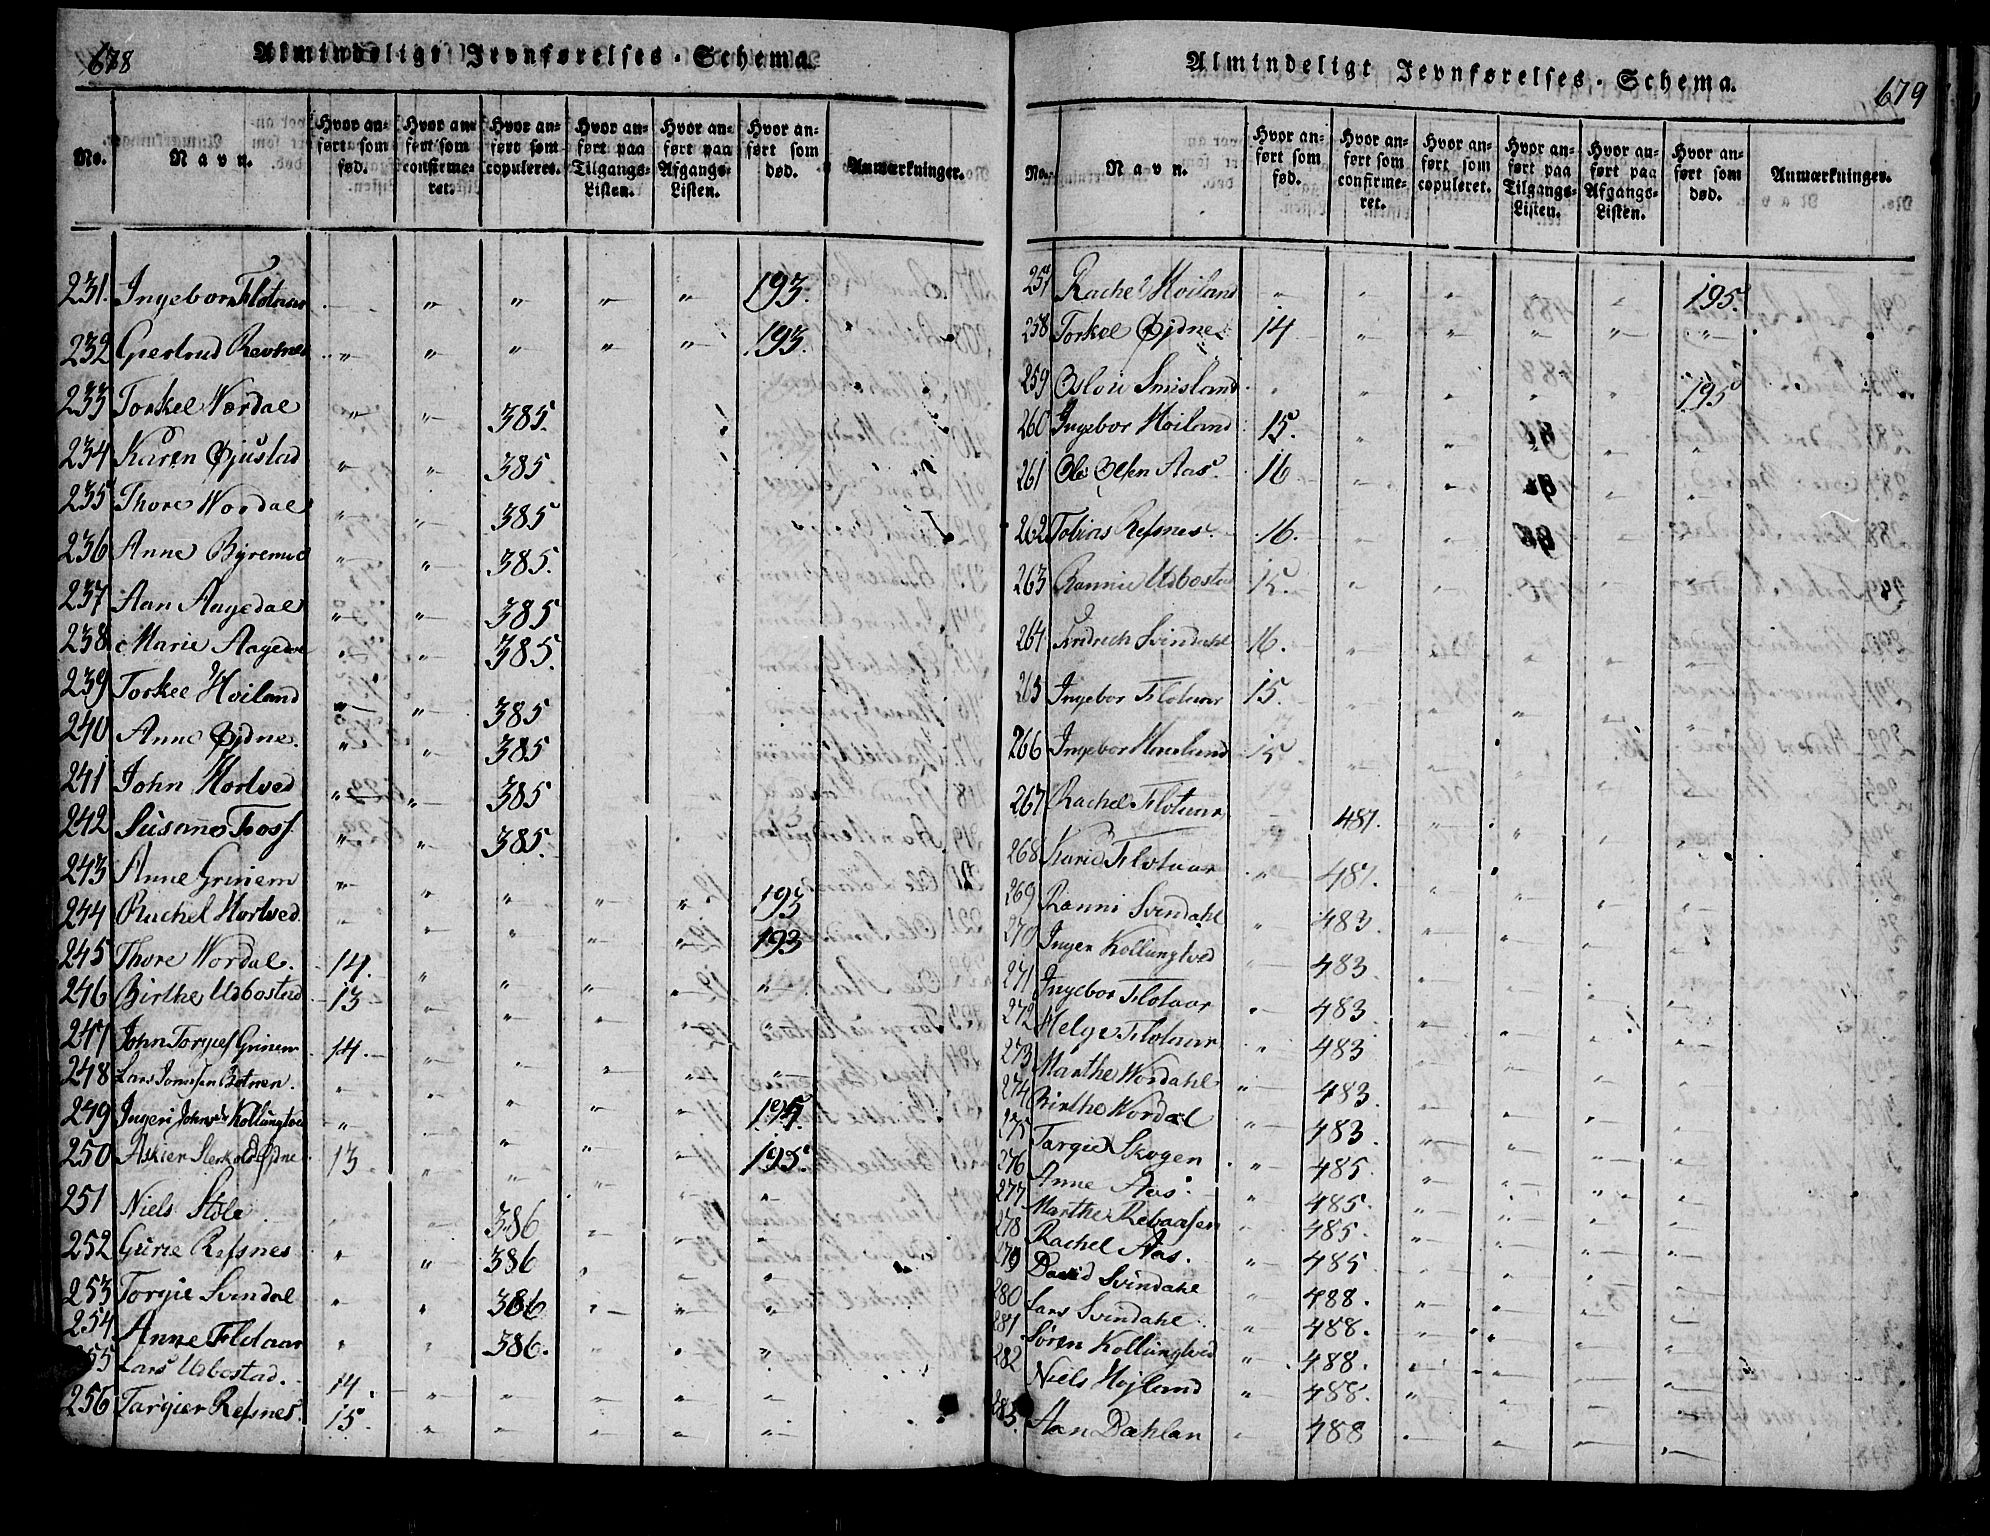 678
Almindeligt Jevnførelses-Schema.
No. Navn. Hvor anført som fød. Hvor anført som confirmeret. Hvor anført som copuleret. Hvor anført paa Tilgangs-Listen. Hvor anført paa Afgangs-Listen. Hvor anført som død. Anmærkninger.
231. Ingebor Flotaar " " " " 193.
232 Gjertrud Revsnes " " " " " 193.
233 Torkel Vordal " " 385.
234 Karen Øjustad " " 385
235 Thore Wordal " " 385
236 Anne Byremo " " 385.
237 Aan Aagedal " " 385
238 Marie Aagedal " " 385.
239 Torkel Høiland " " 385
240 Anne Øjdne. " " 385
241 John Hortved " " 385
242 Susanne Foss " " 385.
243 Anne Grinem " " " " " 193
244 Rachel Hortved " " " " " 193
245 Thore Wordal. 14. " " " " "
246 Birthe Udbostad 13 " " " " "
247 John Torgies Grinem 14. " " " " "
248 Lars Jonassen Betnen. " " " " 195.
249 Ingeri Johns d. Kollungtved " " " " 195.
250 Askier Sterkolds Øjdne 13 " " " " "
251 Niels Støle " " 386 " " "
252 Gurie Refsnes " " 386 " " "
253 Torgie Svindal " " 386 " " "
254 Anne Flotaar " " 386. " " "
255 Lars Udbostad. 14. " " " " "
256 Targier Refsnes. 15. " " " " "
Almindeligt Jevnførelses-Schema.
679
No. Navn. Hvor anført som fød. Hvor anført som confirmeret. Hvor anført som copuleret. Hvor anført paa Tilgangs-Listen. Hvor anført paa Afgangs-Listen. Hvor anført som død. Anmærkninger.
257 Rachel Høiland " " " " " 195.
258 Torkel Øjdne 14 " " " " "
259 Oslou Smisland " " " " " 195
260 Ingebor Høiland 15. " " " "
261 Ole Olsen Aas. 16 " " " "
262 Tobias Refsnes. 16. " " " "
263 Rannie Udbostad 15. " " " " "
264 Fredrich Svindahl 16. " " " " "
265 Ingebor Flotaar 15. " " " " "
266 Ingebor Haaland 15 " " " " "
267 Rachel Flotaar " 481. " " " "
268 Karie Flotaar " 481. " " " "
269 Ranni Svindahl " 483. " " " "
270 Inger Kollungtved " 483. " " " "
271 Ingebor Flotaar " 483. " " " "
272 Helge Flotaar " 483 " " " "
273 Marthe Wordahl " 483. " " " "
274 Birthe Wordal " 483. " " " "
275 Targie Skogen " 485. " " " "
276 Anne Aas. " 485. " " " "
277 Marthe Rebaasen " 485. " " " "
278 Rachel Aas. " 485 " " " "
279 David Svindahl " 488. " " " "
280 Lars Svindahl. " 488. " " " "
281 Søren Kollungtved " 488. " " " "
282 Niels Højland " 488. " " " "
283. Aan Dahlan " 488 " " " "